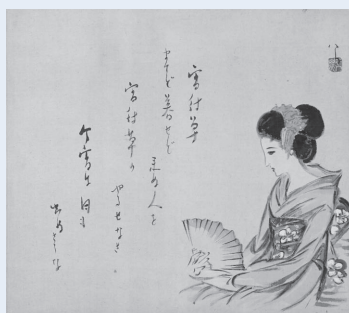 宵待草
まてど暮せど
来ぬ人を
宵待草の
やるせなさ。
今宵は月も
出ぬさうな